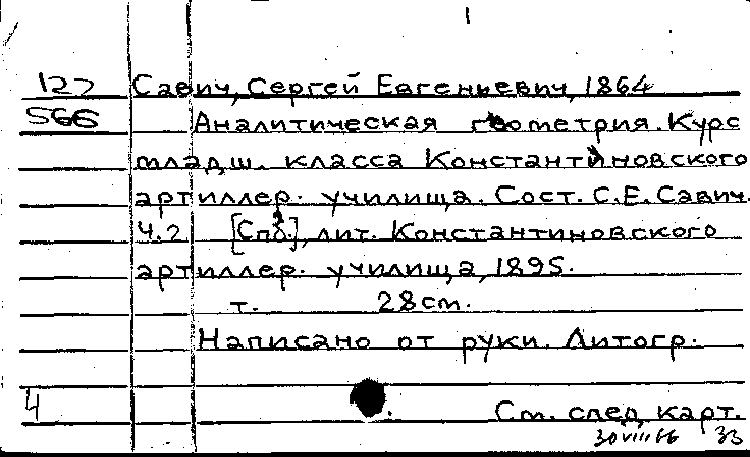 127 Савич, Сергей Евгеньевич, 1864
566 Аналитическая геометрия. Курс
младш. класса Константиновского
артиллер. училища. Сост. С.Е. Савич.
Ч.2 [Спб.], лит. Константиновского
артиллер. училища, 1895.
т. 28 см.
Написано от руки. Литогр.
4 См. след. карт.
30 VIII 66